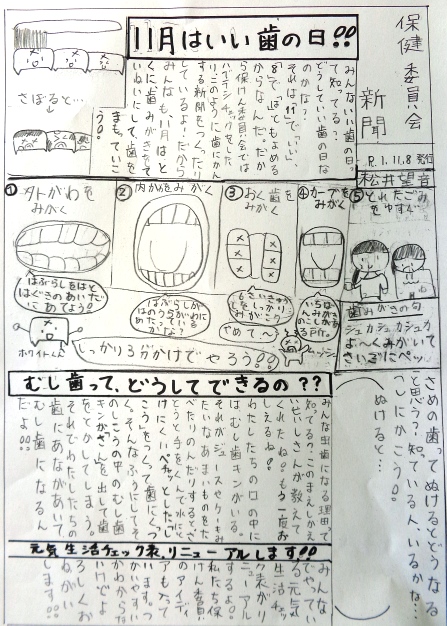 保健委員会
新聞
R.1.11.8 発行
松井望音
11月はいい歯の日!!
みんないい歯の日っ
て知ってる?
どうしていい歯の日な
のかな?
それは「11」で「いい」
「8」で「は」ともよめる
からなんだ。だか
ら保けん委員会では
チェックをした
り、このように歯にかん
する新聞をつくったり
しているよ!だから
みんなも、11月はと
くに歯みがきをて
いねいにして、歯を
まもっていこ
う!!
さぼると…
①外がわを
みがく
はぶらしをはと
はぐきのあいだ
にあてよう!
②内がわをみがく
はぶらしが
はのうらがわに
あたっている
かな?
③おく歯を
みがく
6さいきゅうし
をしっかり
みがこう
やめて〜
④カーブを
みがく
いちばん
⑤とれたごみ
をゆすぐ
ホワイトくん
しっかり3分かけてやろう!!
ムッシー
歯みがきの句
シュカシュカシュカ
よ〜くみがいて
さいごにペッ
むし歯って、どうしてできるの??
みんな虫歯になる理由って
知ってる?このまえ
せんせいが教えて
くれたね。もう一回お
しえるね!
わたしたちの口の中に
はむし歯キンがいる。
それがジュースやケーキみ
たいなあまいものをた
べたりのんだりするとさ
とうと手をくんで水にと
けにくいベチャッとしたし
こうをつくって歯にくっつ
く。そんなふうにしてそ
のしこうの中のむし歯
キンが“さん”を出して歯
をとかしてしまう。
それでわたしたちの
歯にあながあいて、
むし歯になるん
だよ!!
さめの歯ってぬけるとどうなる
と思う?知っている人、いるかな…
つぎにかこう。
ぬけると…
元気生活チェック表、リニューアルします!!
みんなで
やっている元気
生活チェック
表がリニュー
アルするよ。
私たち保
けん委員
のアイディ
アも入って
います。つ
かわからな
いけどよ
ろしくお
ねがい
します!!